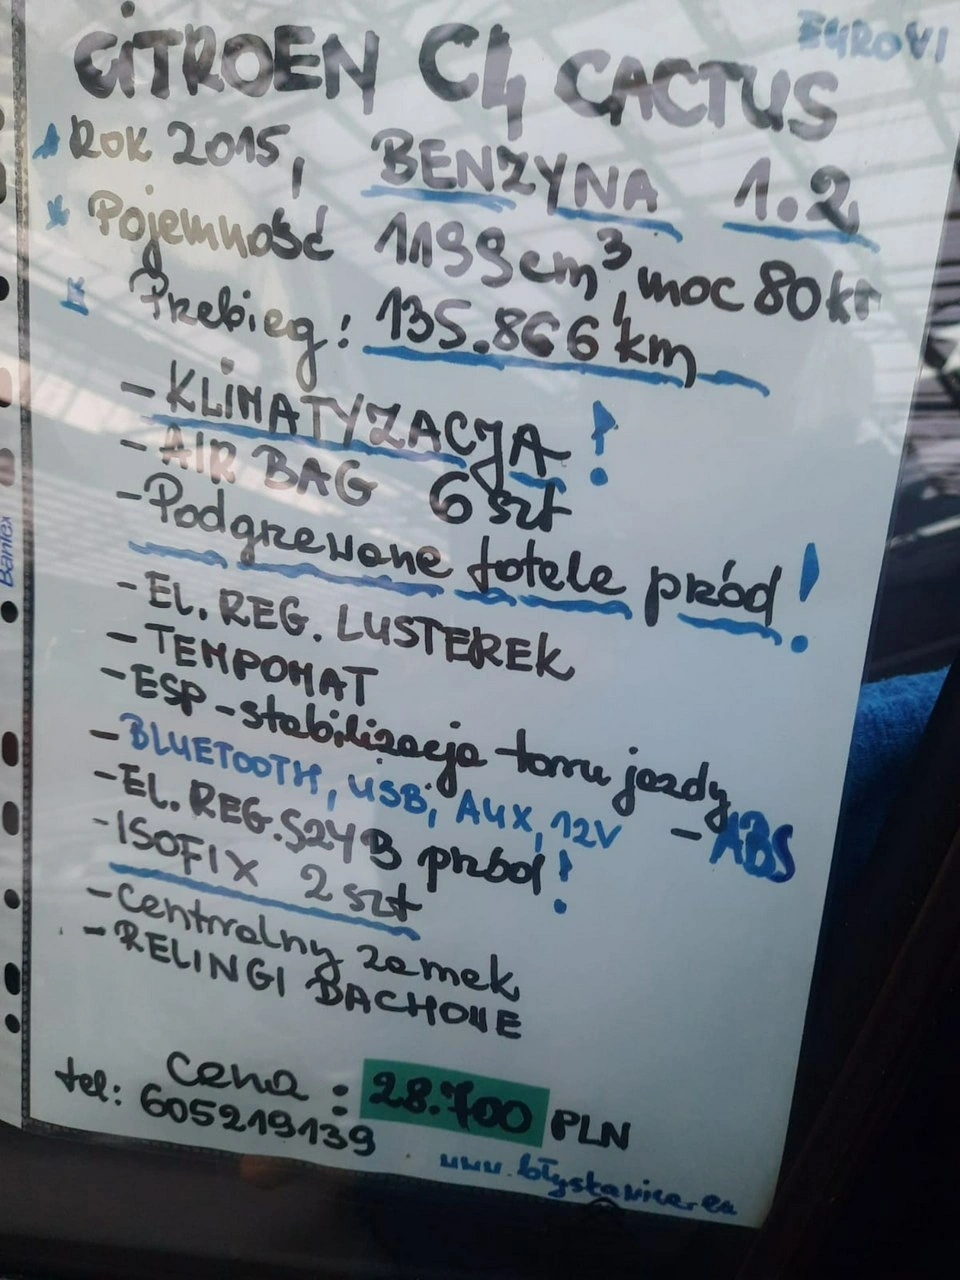 EURO VI
CITROEN C4 CACTUS
Rok 2015, BENZYNA 1.2
Pojemność 1199cm³, moc 80km
Przebieg: 135.866 km
- KLIMATYZACJA!
- AIR BAG 6 szt
- Podgrzewane fotele przód!
- EL. REG. LUSTEREK
- TEMPOMAT
- ESP - stabilizacja toru jazdy
- BLUETOOTH, USB, AUX, 12V - ABS
- EL. REG. SZYB przód!
- ISOFIX 2 szt
- Centralny zamek
- RELINGI DACHOWE
Cena: 28.700 PLN
tel: 605219139
www.
Bantex